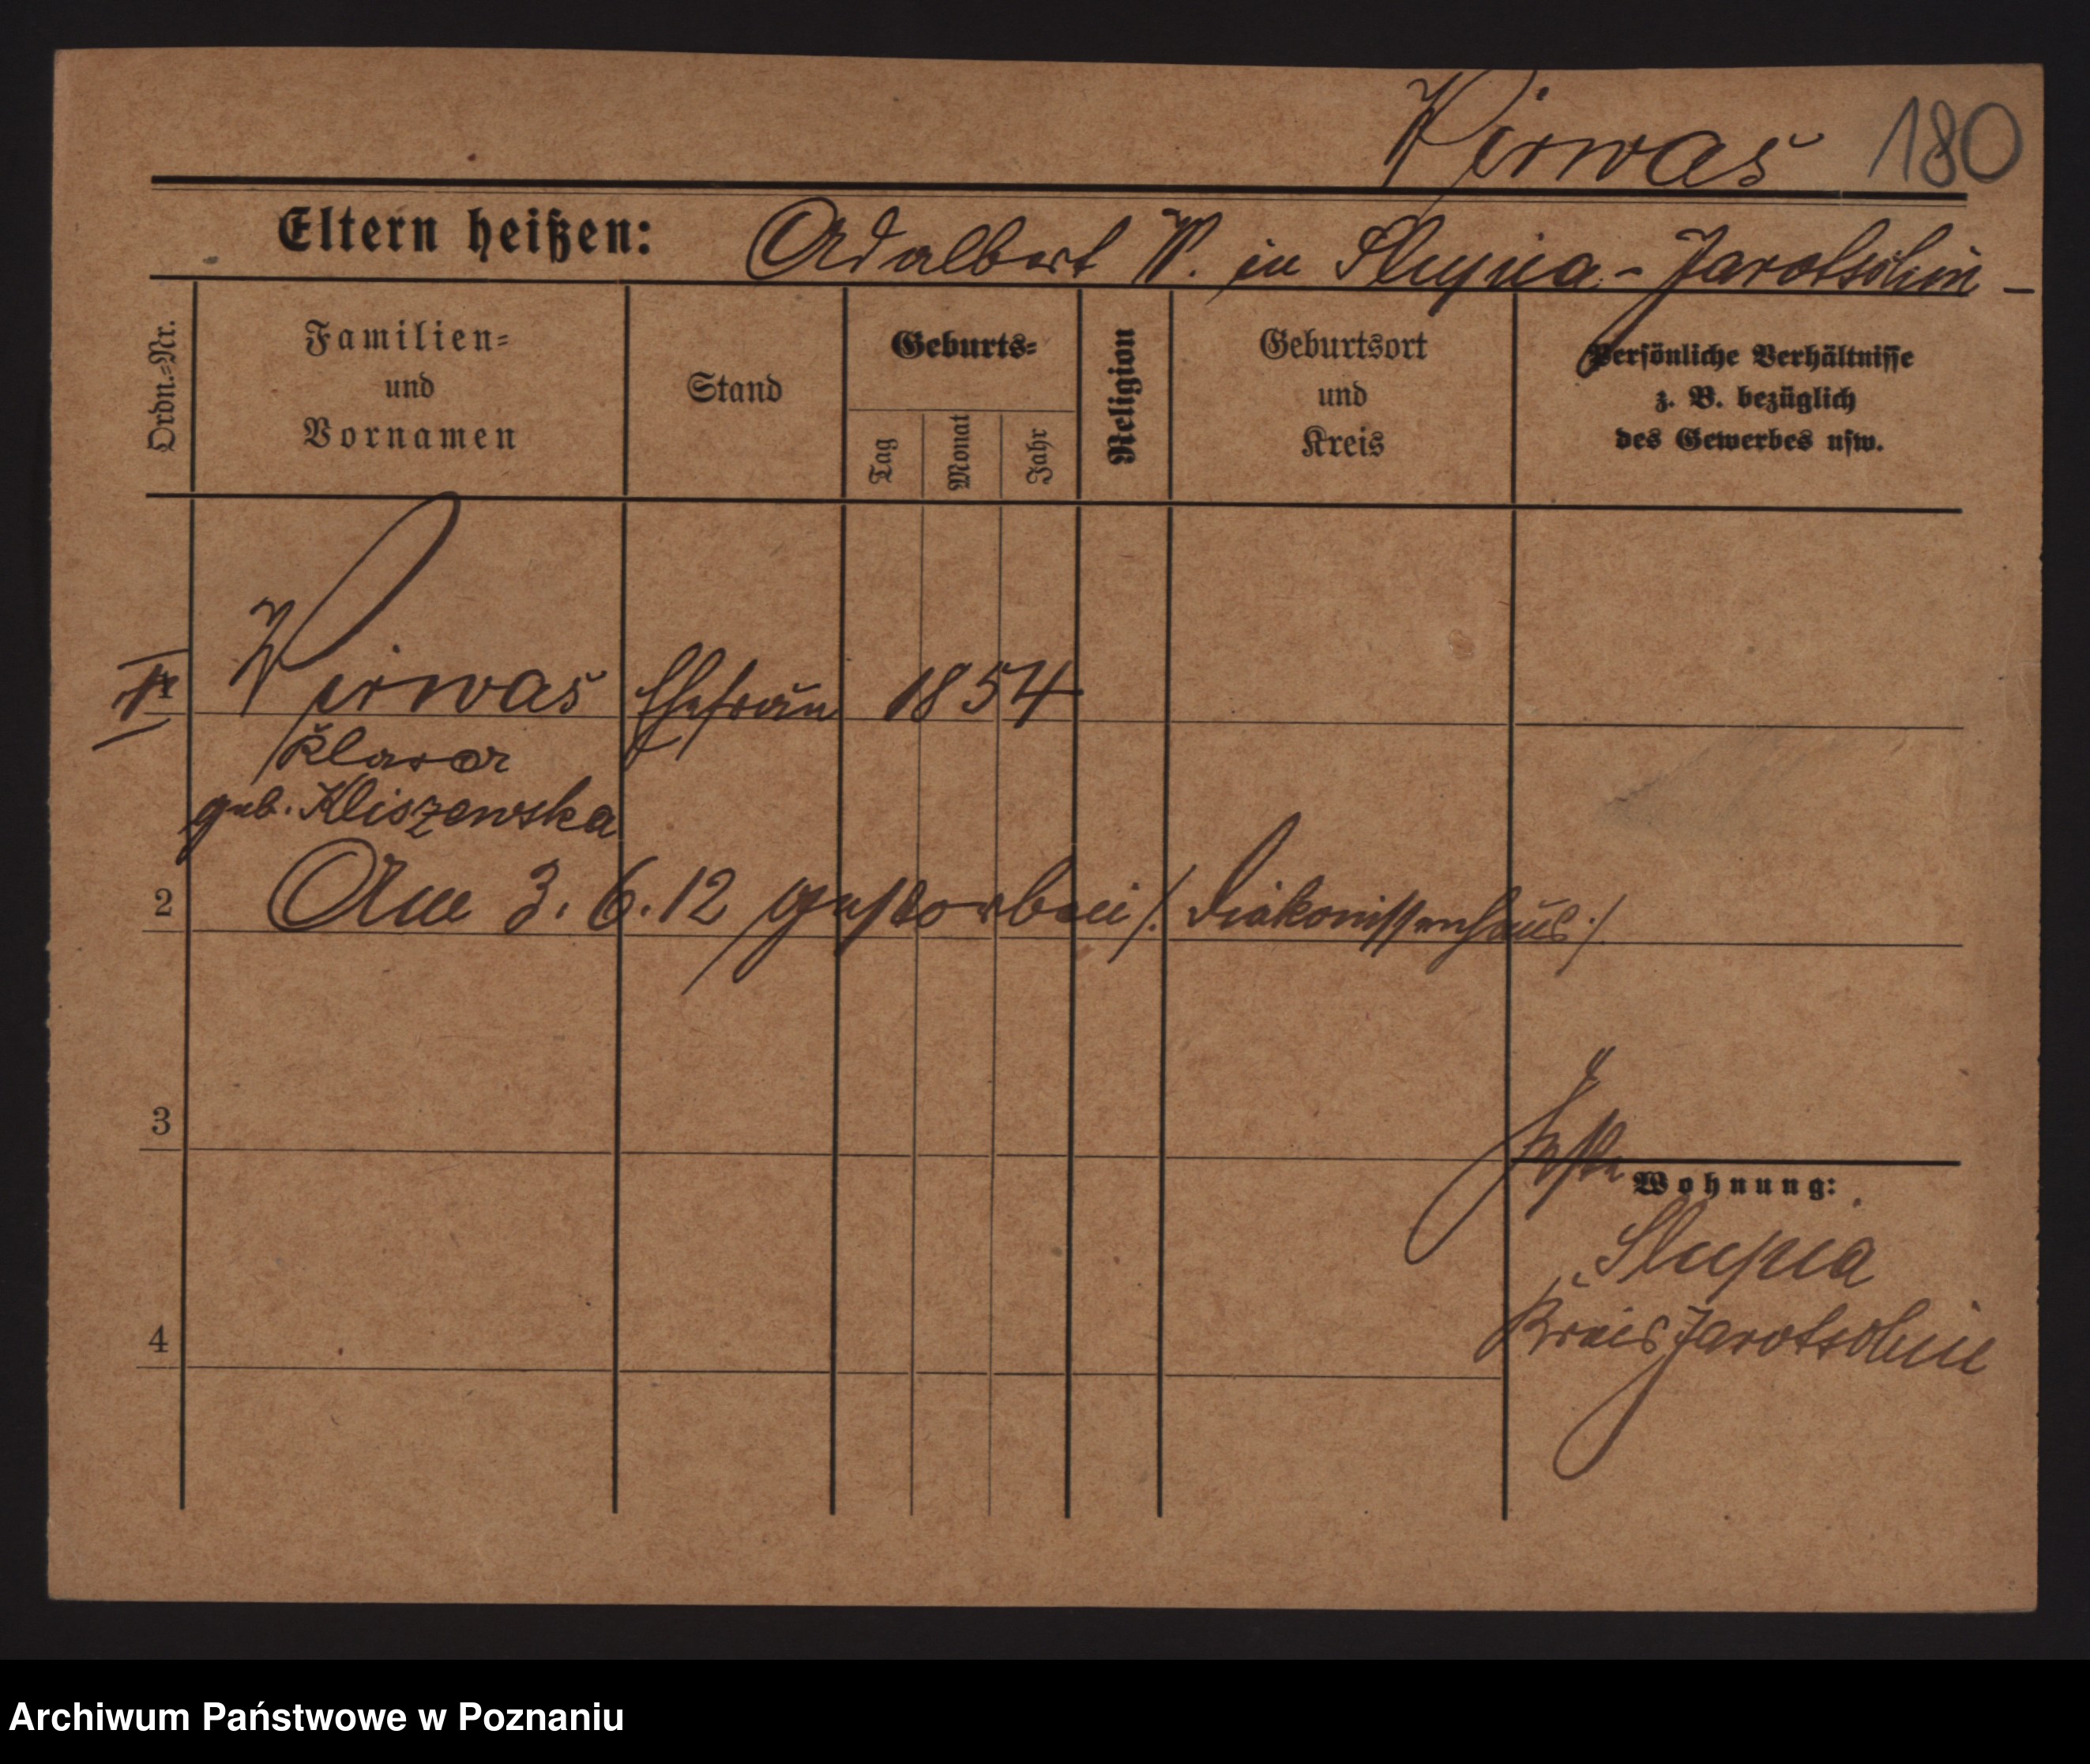 Pirwas 180
Eltern heißen: Adalbert P. in Slupia - Jarotschin -
Ordn.=Nr.
Familien=
und
Vornamen
Stand
Geburts=
Tag
Monat
Jahr
Religion
Geburtsort
und
Kreis
Persönliche Verhältnisse
z. B. bezüglich
des Gewerbes usw.
1 Pirwas Ehefrau 1854
Klara
geb. Kliszewska
2 Am 3. 6. 12 gestorben /. Diakonissenhaus ./
3
Wohnung:
Slupia
4 Kreis Jarotschin
Archiwum Państwowe w Poznaniu